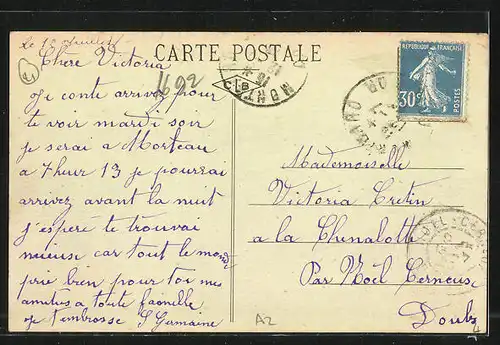 Le 12 Juillet
CARTE POSTALE
Chere Victoria
492
Je conte arrivez pour
te voir mardi soir
je serai a Morteau
a 7 hur 13 je pourrai
arrivez avant la nuit
j'esperé te trouvai
mieuse car tout le monde
prie bien pour toi mes
amitiés a toute
je t'embrosse S Germaine
REPUBLIQUE FRANÇAISE
30c
POSTES
C B
Mademoiselle
Victoria Cretin
a la Chenalotte
Par Noël Cerneuse
Doubs
A2